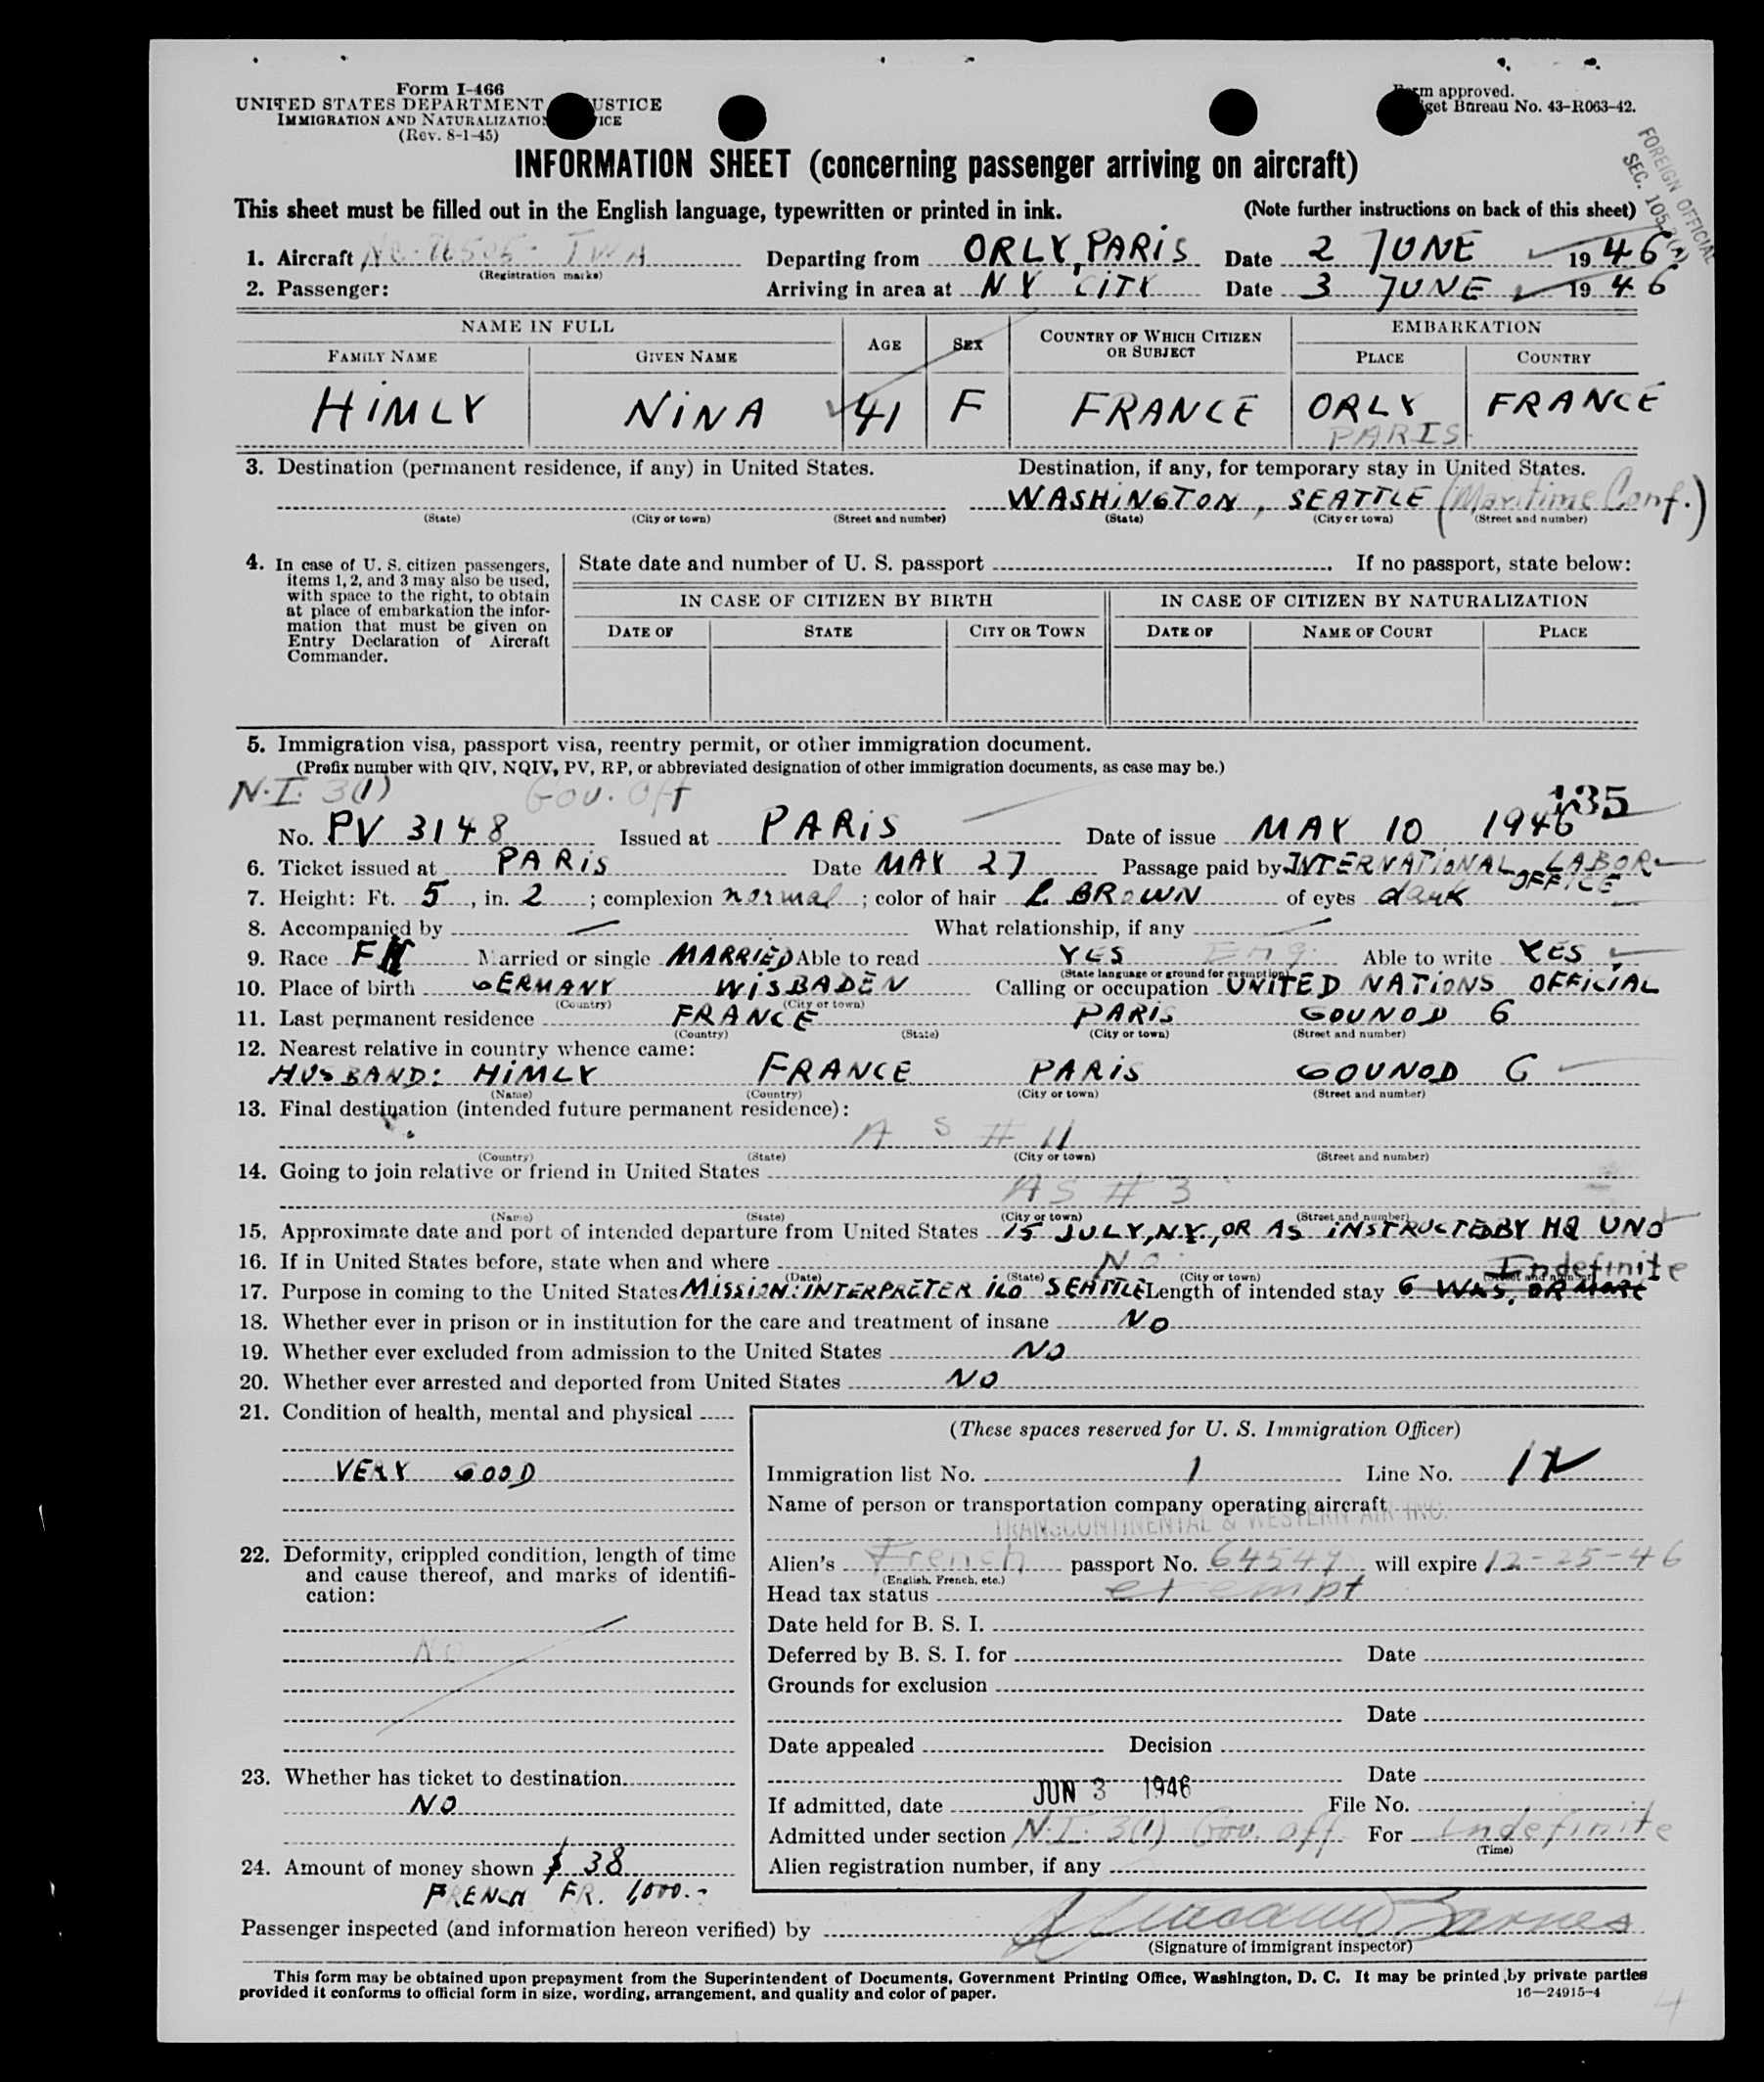 Form I-466
UNITED STATES DEPARTMENT USTICE
IMMIGRATION AND NATURALIZATION ICE
(Rev. 8-1-45)
rm approved.
get Bureau No. 43-R063-42.
FOREIGN OFFICIAL
INFORMATION SHEET (concerning passenger arriving on aircraft)
This sheet must be filled out in the English language, typewritten or printed in ink. (Note further instructions on back of this sheet)
1. Aircraft TWA Departing from ORLY, PARIS Date 2 JUNE 1946
(Registration marks)
2. Passenger: Arriving in area at NY CITY Date 3 JUNE 1946
NAME IN FULL AGE SEX COUNTRY OF WHICH CITIZEN OR SUBJECT EMBARKATION
FAMILY NAME GIVEN NAME PLACE COUNTRY
HIMLY NINA 41 F FRANCE ORLY FRANCE
PARIS
3. Destination (permanent residence, if any) in United States. Destination, if any, for temporary stay in United States.
WASHINGTON, SEATTLE (Maritime Conf.)
(State) (City or town) (Street and number) (State) (City or town) (Street and number)
4. In case of U. S. citizen passengers, items 1, 2, and 3 may also be used, with space to the right, to obtain at place of embarkation the information that must be given on Entry Declaration of Aircraft Commander.
State date and number of U. S. passport If no passport, state below:
IN CASE OF CITIZEN BY BIRTH IN CASE OF CITIZEN BY NATURALIZATION
DATE OF STATE CITY OR TOWN DATE OF NAME OF COURT PLACE
5. Immigration visa, passport visa, reentry permit, or other immigration document.
(Prefix number with QIV, NQIV, PV, RP, or abbreviated designation of other immigration documents, as case may be.)
N.I. 3(1) Gov. Off 135
No. PV 3148 Issued at PARIS Date of issue MAY 10 1946
6. Ticket issued at PARIS Date MAY 27 Passage paid by INTERNATIONAL LABOR OFFICE
7. Height: Ft. 5, in. 2; complexion normal; color of hair L. BROWN of eyes dark
8. Accompanied by What relationship, if any
9. Race Married or single MARRIED Able to read YES Eng. Able to write YES
(State language or ground for exemption)
10. Place of birth GERMANY WISBADEN Calling or occupation UNITED NATIONS OFFICIAL
(Country) (City or town)
11. Last permanent residence FRANCE PARIS GOUNOD 6
(Country) (State) (City or town) (Street and number)
12. Nearest relative in country whence came:
HUSBAND: HIMLY FRANCE PARIS GOUNOD 6
(Name) (Country) (City or town) (Street and number)
13. Final destination (intended future permanent residence):
AS # 11
(Country) (State) (City or town) (Street and number)
14. Going to join relative or friend in United States
AS # 3
(Name) (State) (City or town) (Street and number)
15. Approximate date and port of intended departure from United States 15 JULY, N.Y., OR AS INSTRUCTED BY HQ UNO
16. If in United States before, state when and where NO
(Date) (State) (City or town) (Street and number)
Indefinite
17. Purpose in coming to the United States MISSION: INTERPRETER ILO SEATTLE Length of intended stay 6 WKS, OR MORE
18. Whether ever in prison or in institution for the care and treatment of insane NO
19. Whether ever excluded from admission to the United States NO
20. Whether ever arrested and deported from United States NO
21. Condition of health, mental and physical
VERY GOOD
22. Deformity, crippled condition, length of time and cause thereof, and marks of identification:
NO
23. Whether has ticket to destination
NO
24. Amount of money shown $ 38
FRENCH FR. 1,000.-
(These spaces reserved for U. S. Immigration Officer)
Immigration list No. 1 Line No.
Name of person or transportation company operating aircraft
TRANSCONTINENTAL & WESTERN AIR INC.
Alien's French passport No. 64547 will expire 12-25-46
(English, French, etc.)
Head tax status exempt
Date held for B. S. I.
Deferred by B. S. I. for Date
Grounds for exclusion
Date
Date appealed Decision
Date
If admitted, date JUN 3 1946 File No.
Admitted under section N.I. 3(1) Gov. off For Indefinite
(Time)
Alien registration number, if any
Passenger inspected (and information hereon verified) by Barnes
(Signature of immigrant inspector)
This form may be obtained upon prepayment from the Superintendent of Documents, Government Printing Office, Washington, D. C. It may be printed by private parties
provided it conforms to official form in size, wording, arrangement, and quality and color of paper.
16—24915-4
4